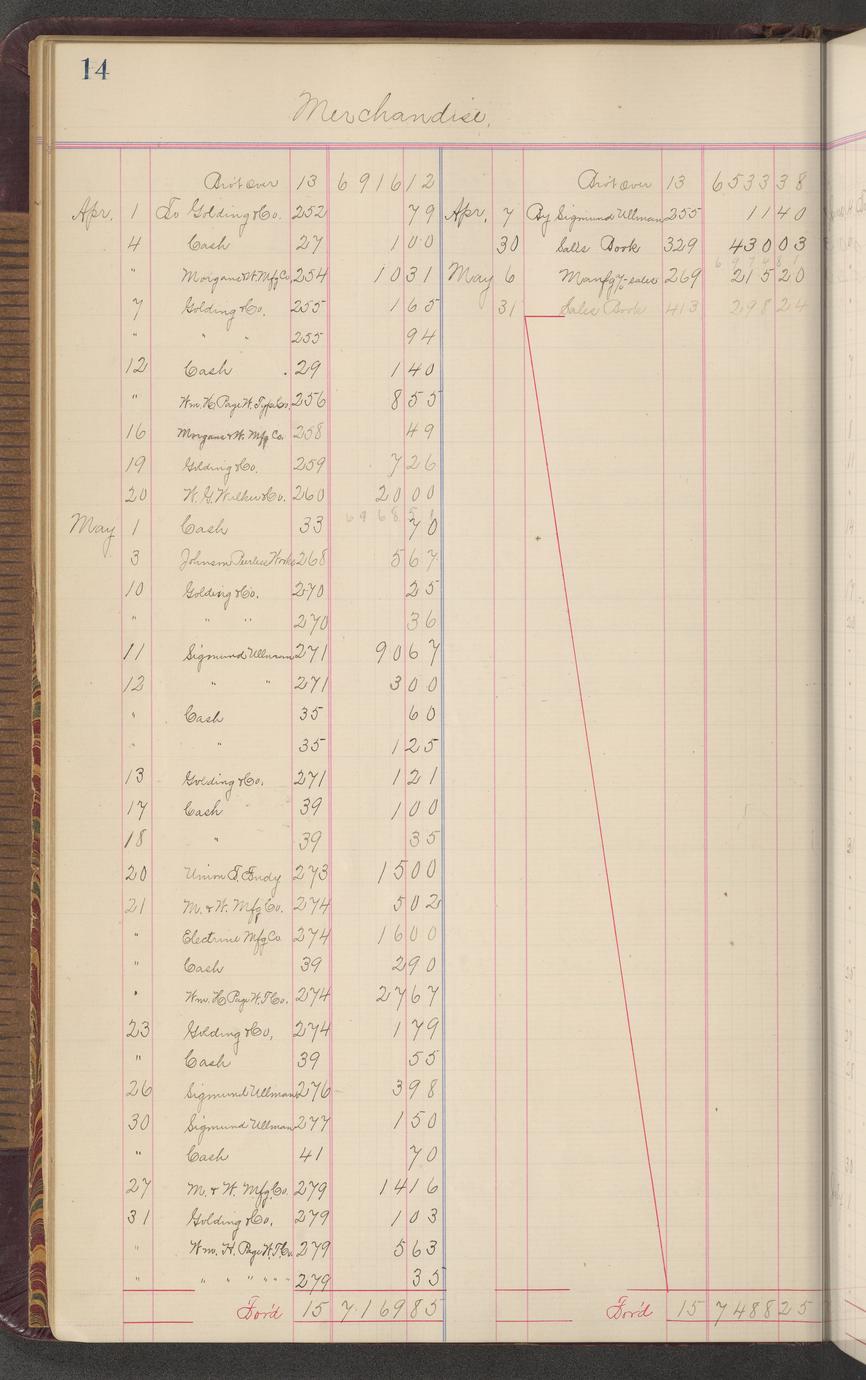 14
Merchandise.
Bro't Over 13 6916 12
Apr. 1 To Golding & Co. 252 79
4 Cash 27 1 00
" Morgans & W. Mfg Co. 254 10 31
7 Golding & Co. 255 1 65
" " " 255 94
12 Cash 29 1 40
" Wm. H. Page W. Type Co. 256 8 55
16 Morgans & W. Mfg Co. 258 49
19 Golding & Co. 259 7 26
20 W. G. Walker & Co. 260 20 00
6 9 6 8 5 1
May 1 Cash 33 70
3 Johnson Peerless Works 268 5 67
10 Golding & Co. 270 25
" " " 270 36
11 Sigmund Ullman 271 90 67
12 " " 271 3 00
" Cash 35 60
" " 35 1 25
13 Golding & Co. 271 1 21
17 Cash 39 1 00
18 " 39 35
20 Union T. Fndy 273 15 00
21 M. & W. Mfg Co. 274 5 02
" Electrine Mfg Co 274 16 00
" Cash 39 2 90
" Wm. H. Page W. T. Co. 274 27 67
23 Golding & Co, 274 1 79
" Cash 39 55
26 Sigmund Ullman 276 3 98
30 Sigmund Ullman 277 1 50
" Cash 41 70
27 M. & W. Mfg. Co. 279 14 16
31 Golding & Co. 279 1 03
" Wm. H. Page W. T. Co. 279 5 63
" " " " " " " 279 35
For'd 15 7169 85
Bro't Over 13 6533 38
Apr. 7 By Sigmund Ullman 255 11 40
30 Sales Book 329 430 03
6 9 7 4 8 1
May 6 Manfg %-sales 269 215 20
31 Sales Book 413 298 24
For'd 15 7488 25